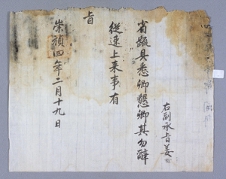 右副承旨姜
省疏具悉卿懇卿其勿辭
從速上來事有
旨
崇禎四年二月十九日